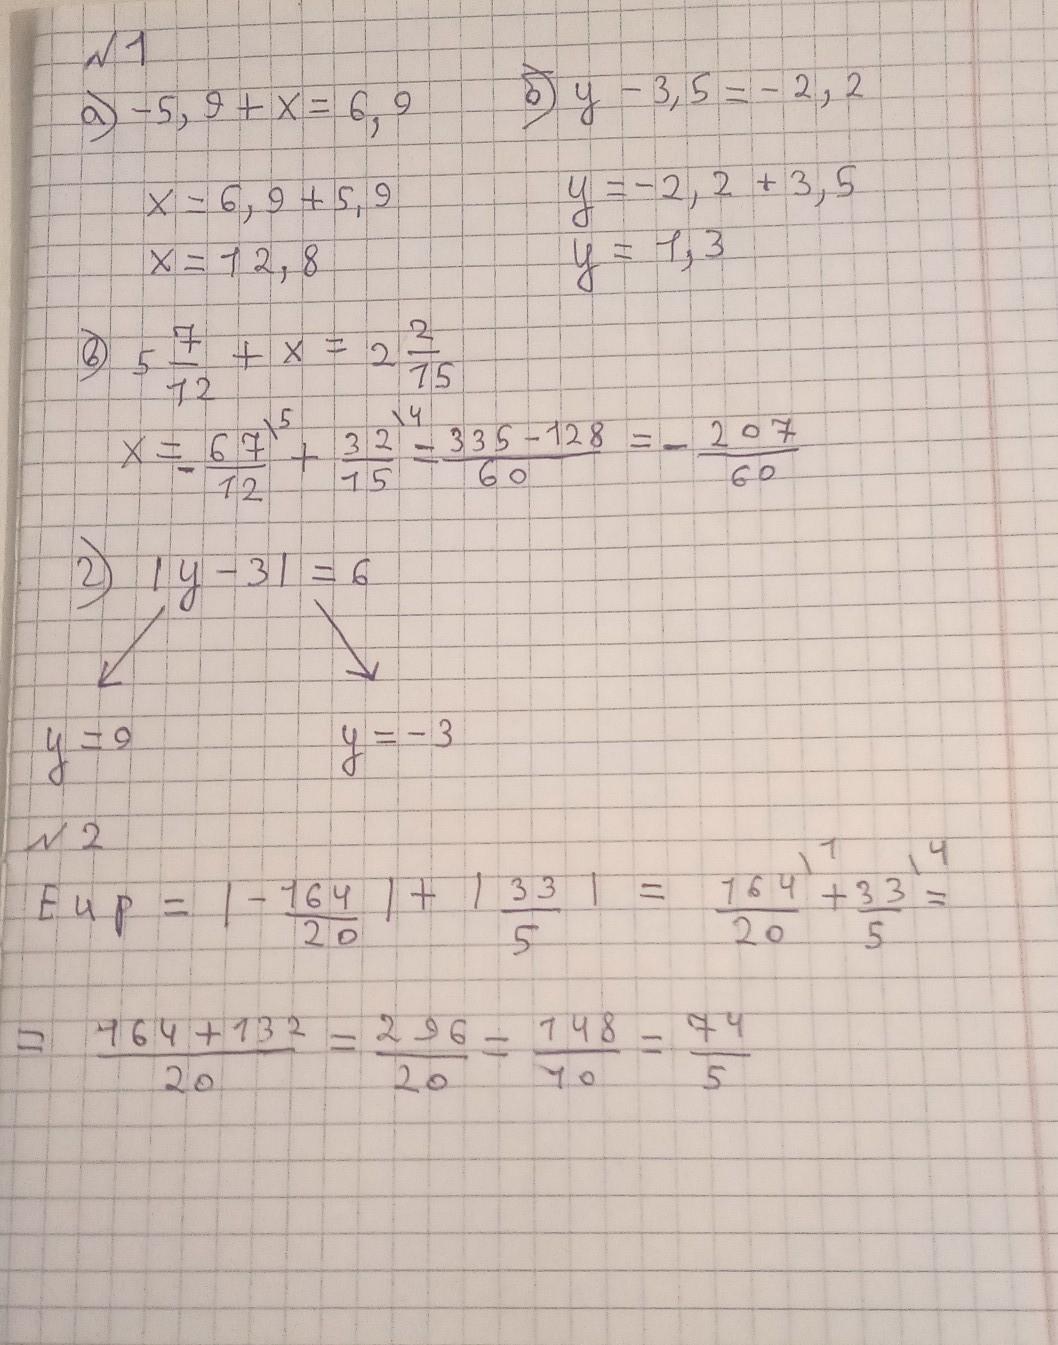 №1
а) -5,9+x=6,9
б) y-3,5=-2,2
x=6,9+5,9
y=-2,2+3,5
x=12,8
y=1,3
в) 5 7/12 + x = 2 2/15
x = - 67/12 \5 + 32/15 \4 = 335-128/60 = - 207/60
г) |y-3|=6
y=9
y=-3
№2
Eup = |-164/20| + |33/5| = 164/20 \1 + 33/5 \4 =
= 164+132/20 = 296/20 = 148/10 = 74/5